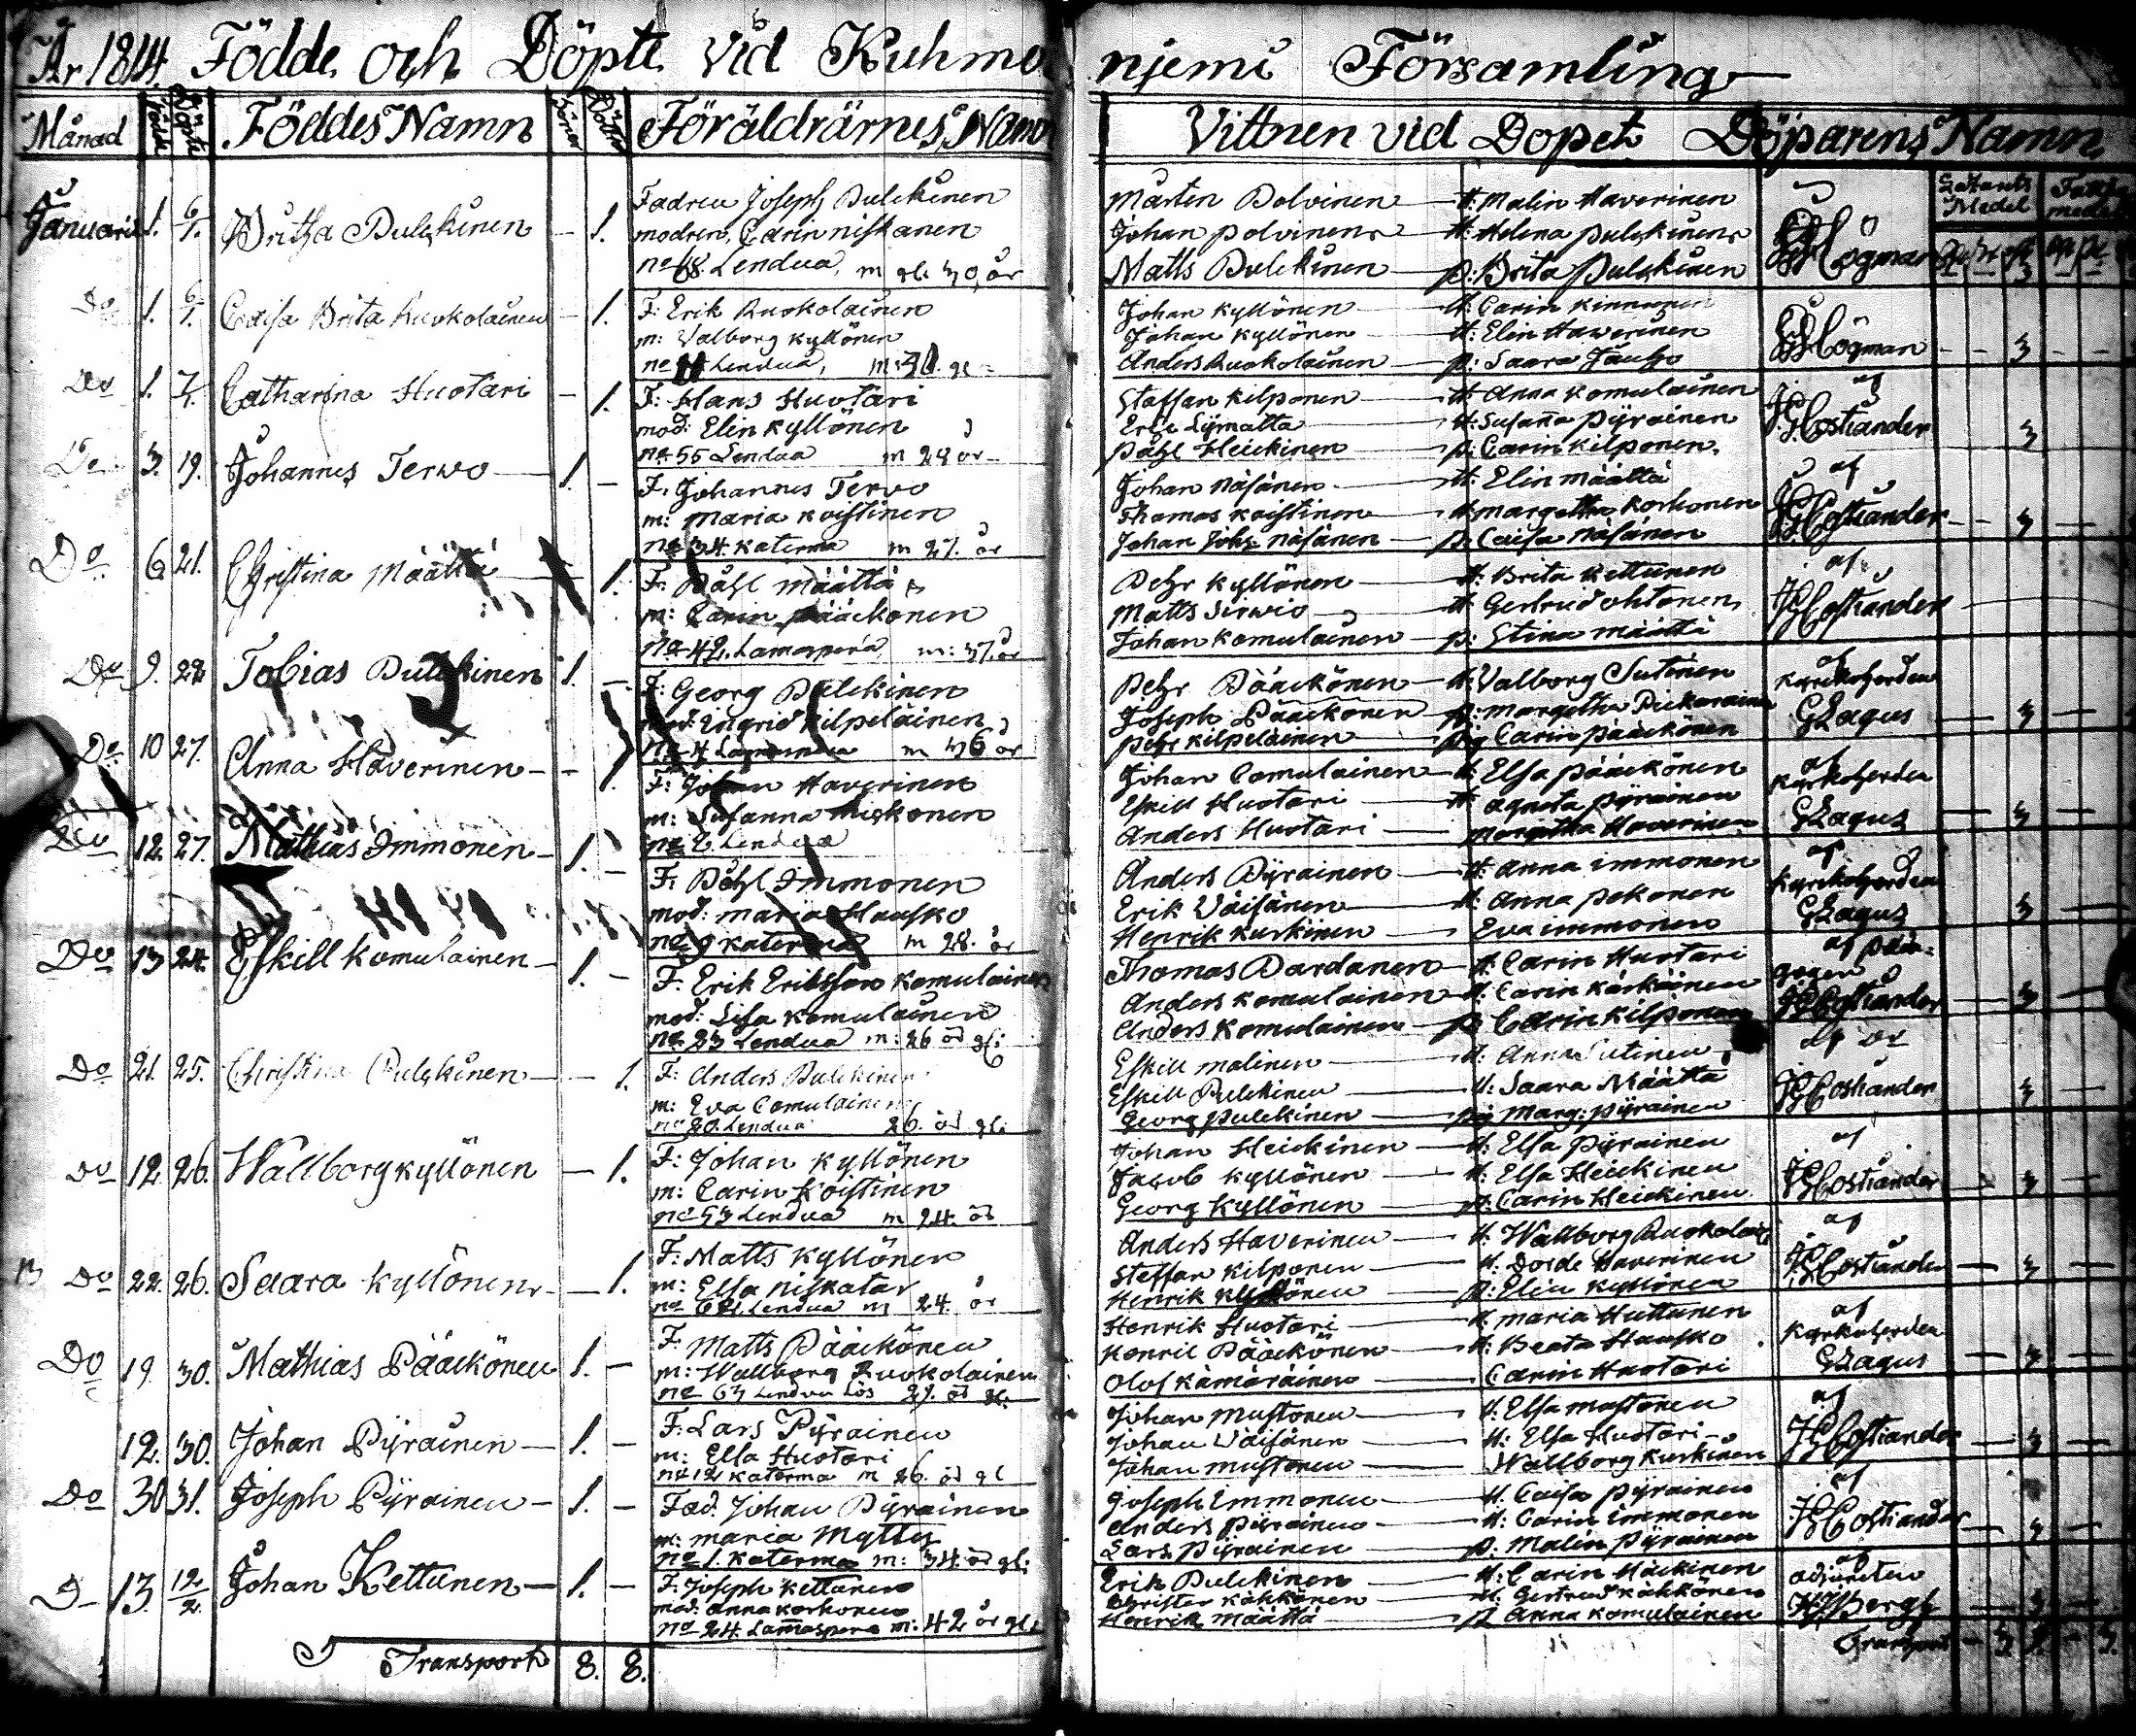 År 1814. Födde och Döpte Vid Kuhmo njemi Församling
Månad Födde Döpte Föddes Namn Söner Döttrar Föräldrarnes Namn
Vittnen vid Dopet Döparens Namn
Januarii 1. 6/1. Britha Pulckinen - 1.
Fadren Joseph Pulckinen
modren, Carin niskanen
no 68. Lendua, m gl: 30, år
Mårten Polvinen H: Malin Haverinen
Johan polvinen H: Helena pulckinen
Matts Pulckinen p: Brita pulckinen
Högman
Do 1. 6/1. Caisa Brita Ruokolainen - 1.
F: Erik Ruokolainen
m: Valborg kyllönen
Lendua,
Johan kyllönen H: Carin
Johan kyllönen H: Elin Hawerinen
Anders Ruokolainen p: Saara
Högman - - 3 - -
Do 1. Catharina Huotari - 1.
F: Hans Huotari
mod: Elin kyllönen
no 55 Lendua m 28 år
Staffan kilponen H: Anna komulainen
H: Susana pyrainen
påhl Heickinen p: Carin kilponen.
af
Costiander 3
Do 3. 19. Johannes Terwo 1. -
F: Johannes Tervo
m: Maria koistinen
no 34. katerma m 27. år
Johan näsänen H: Elin määttä
Thomas koistinen H margetha korhonen
Johan Johs näsänen p. Caisa näsänen
af
Costiander - 3 -
Do 6. 21. Christina Määttä 1.
F: Påhl Määttä
m: Carin pääckönen
no 42. Lamaspera m: 37. år
Pehr kyllönen H: Brita kettunen
Matts Sirwio H Gertrud ohtonen
Johan komulainen p: Stina määttä
af
Costiander
Do 9. 22 Tobias Pulckinen 1. -
F: Georg Pulckinen
mod: Ingrid kilpeläinen
m 36 år
Pehr Pääckönen H: Valborg Sutinen
Joseph Pääckönen p: margetha
pehr kilpeläinen pig Carin pääckönen
af
kyrckoherden
GLagus - 3 -
Do 10 27. Anna Haverinen - - 1.
F: Johan Haverinen
m: Susanna
no 2. Lendua
Johan Comulainen H: Elsa pääckönen
Eskill Huotari H: agneta pyrainen
Anders Huotari margetha Haverinen
af
kyrkoherden
GLagus - 3 -
Do 12. 27. Mathias Immonen - 1. -
F: Påhl Immonen
mod: maria Hausko
no 9 katerma m 28. år
Anders Pyrainen H: anna immonen
Erik Väisänen H: anna pekonen
Henrik kurkinen Eva immonen
af
kyrkoherden
GLagus 3 -
Do 13 24. Eskill komulainen - 1. -
F: Erik Ericksson komulainen
mod: Lisa komulainen
no 23 Lendua m: 26 år gl:
Thomas Pardanen H: Carin Huotari
Anders komulainen H: Carin kärkäinen
Anders komulainen p Carin kilponen
Costiander - 3 -
Do 21. 25. Christina Pulckinen - 1.
F: Anders Pulckinen
m: Eva Comulainen
no 20. Lendua 26. år gl:
Eskill malinen H: Anna Sutinen
Eskill Pulckinen H: Saara Määttä
Georg pulckinen pig Marg: pyrainen
Costiander 3 -
Do 12. 26. Wallborg kyllönen - 1.
F: Johan kyllönen
m: Carin Koistinen
no 53 Lendua m 24. år
Johan Heickinen H: Elsa pyrainen
Jacob kyllönen H: Elsa Heickinen
Georg kyllönen p: Carin Heickinen
af
Costiander - 3 -
Do 22. 26. Saara kyllönen - 1.
F: Matts kyllönen
m: Elsa niskatar
Lendua m 24. år
Anders Haverinen H: Wallborg
Steffan kilponen H: Dorde Haverinen
Henrik kyllönen p: Elin kyllönen
af
Costiander - 3 -
Do 19. 30. Mathias Pääckönen 1. -
F: Matts Pääckönen
m: Wallborg Ruokolainen
no 63 Lendua Lös 27. år gl:
Henrik Huotari H maria Huttunen
Henric Pääckönen H: Beata Hausko
Olof kämäräinen Carin Huotari
af
kyrkoherden
GLagus - 3 -
12. 30. Johan Pyrainen - 1. -
F: Lars Pyrainen
m: Elsa Huotari
no 12 katerma m 26. år gl
Johan mustonen H: Elsa mustonen
Johan Väisänen H: Elsa Huotari
Johan mustonen Wallborg kurkinen
af
Costiander - 3 -
Do 30 31. Joseph Pyrainen - 1. -
Fad. Johan Pyrainen
m: maria Mytty
no 1. katerma m: 34. år gl:
Joseph Immonen H: Caisa pyrainen
anders pyrainen H: Carin immonen
Lars pyrainen p: Malin pyrainen
af
Costiander - 3 -
D- 13. 12/2. Johan Kettunen - 1. -
F: Joseph kettunen
mod: anna korhonen
no 24. Lamaspera m: 42 år gl:
Erik Pulckinen H: Carin Häickinen
Christer kähkönen H: Gertrud kähkönen
Henrik määttä p anna komulainen
af
adjuncten
Bergh - 3 -
Transport 8. 8.
Transport